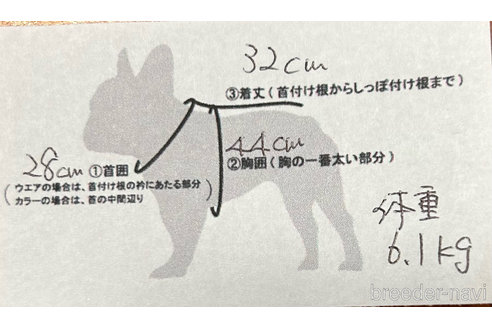 32cm
③着丈(首付け根からしっぽ付け根まで)
44cm
②胸囲(胸の一番太い部分)
28cm ①首囲
(ウエアの場合は、首付け根の衿にあたる部分
カラーの場合は、首の中間辺り)
体重
6.1kg
breeder-navi